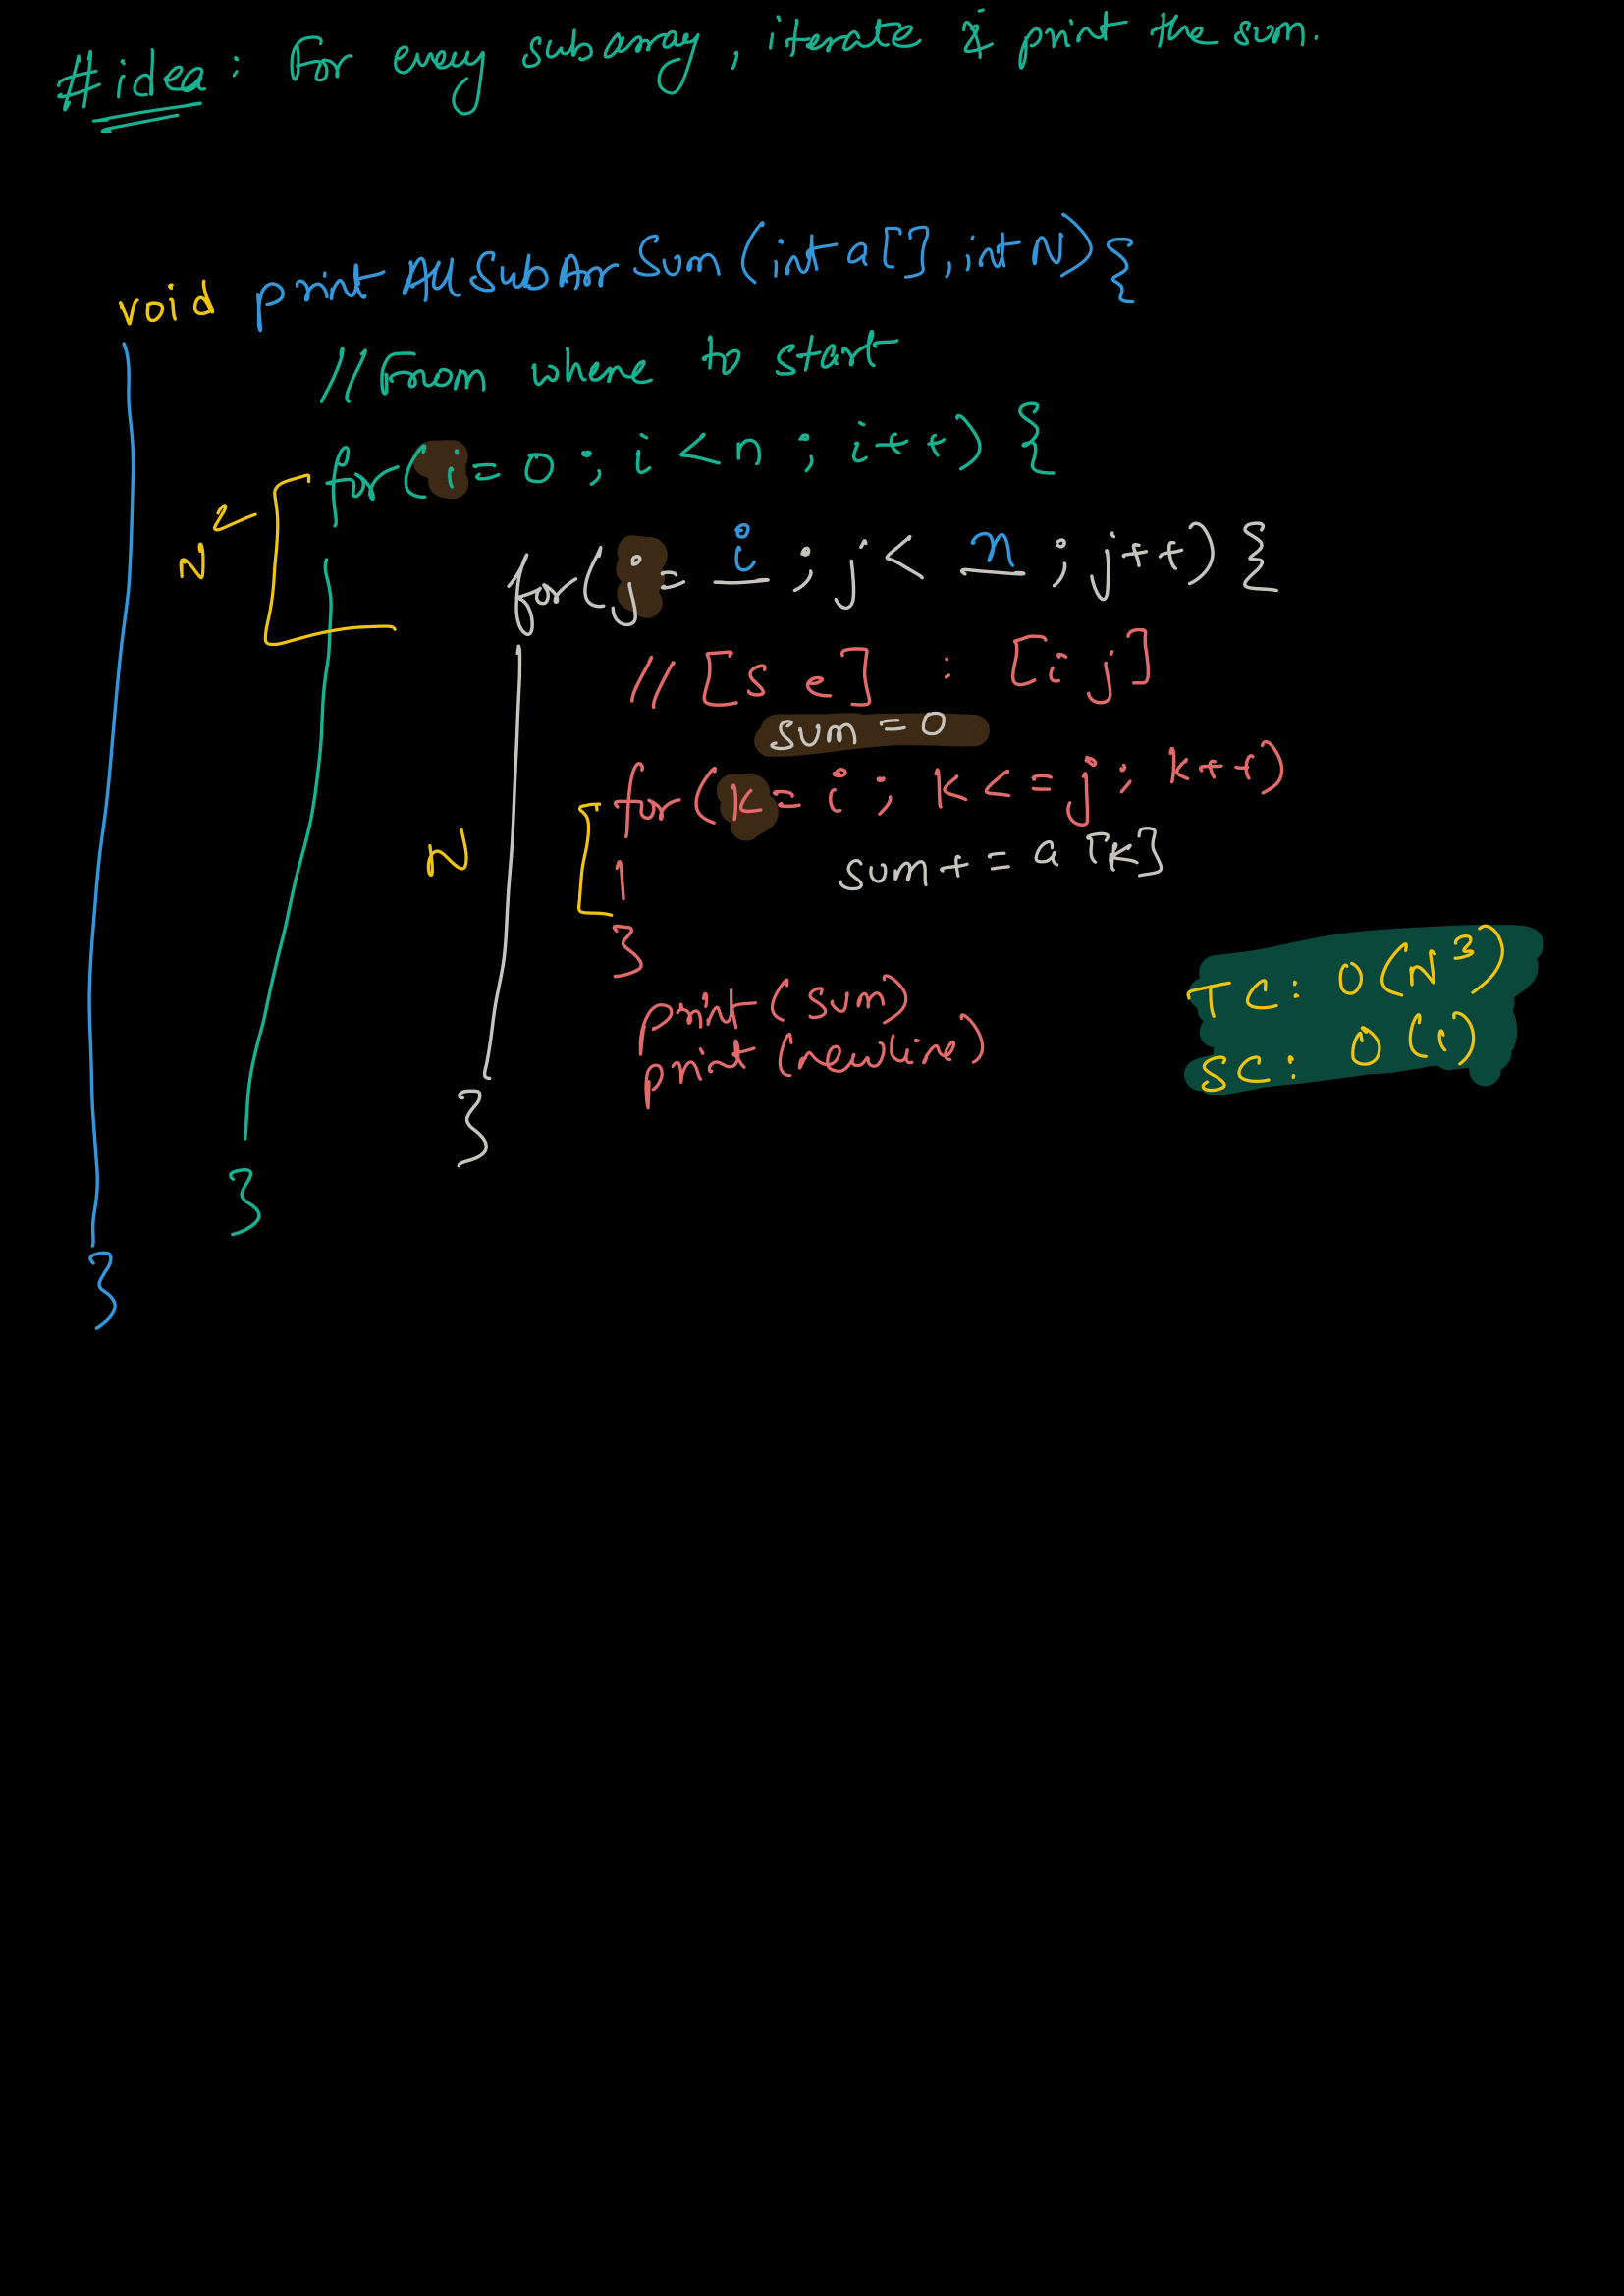 #idea: For every subarray, iterate & print the sum.
void printAllSubArrSum(int a[], int N){
//From where to start
for(i=0; i<n; i++) {
N²
for(j= i; j< n; j++) {
//[s e] : [i j]
sum = 0
for(k= i; k<=j; k++)
N
sum+= a[k]
}
TC: O(N³)
print(sum)
SC: O(1)
print(newline)
}
}
}